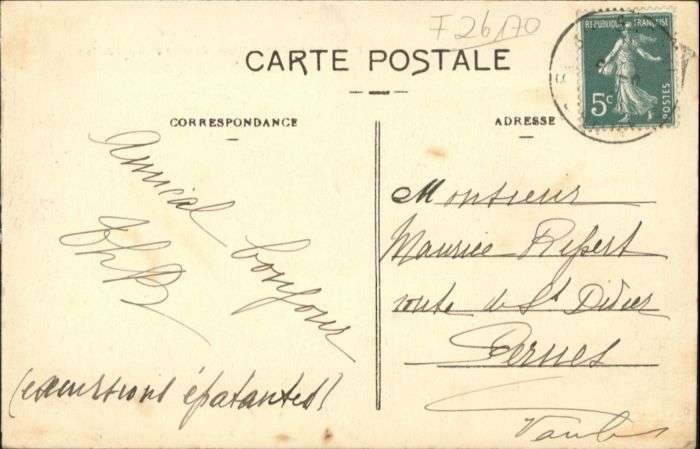 F 26170
CARTE POSTALE
CORRESPONDANCE
ADRESSE
REPUBLIQUE FRANÇAISE
5c
POSTES
Amical bonjour
(excursions épatantes)
Monsieur
Maurice Ripert
route de St Didier
Pernes